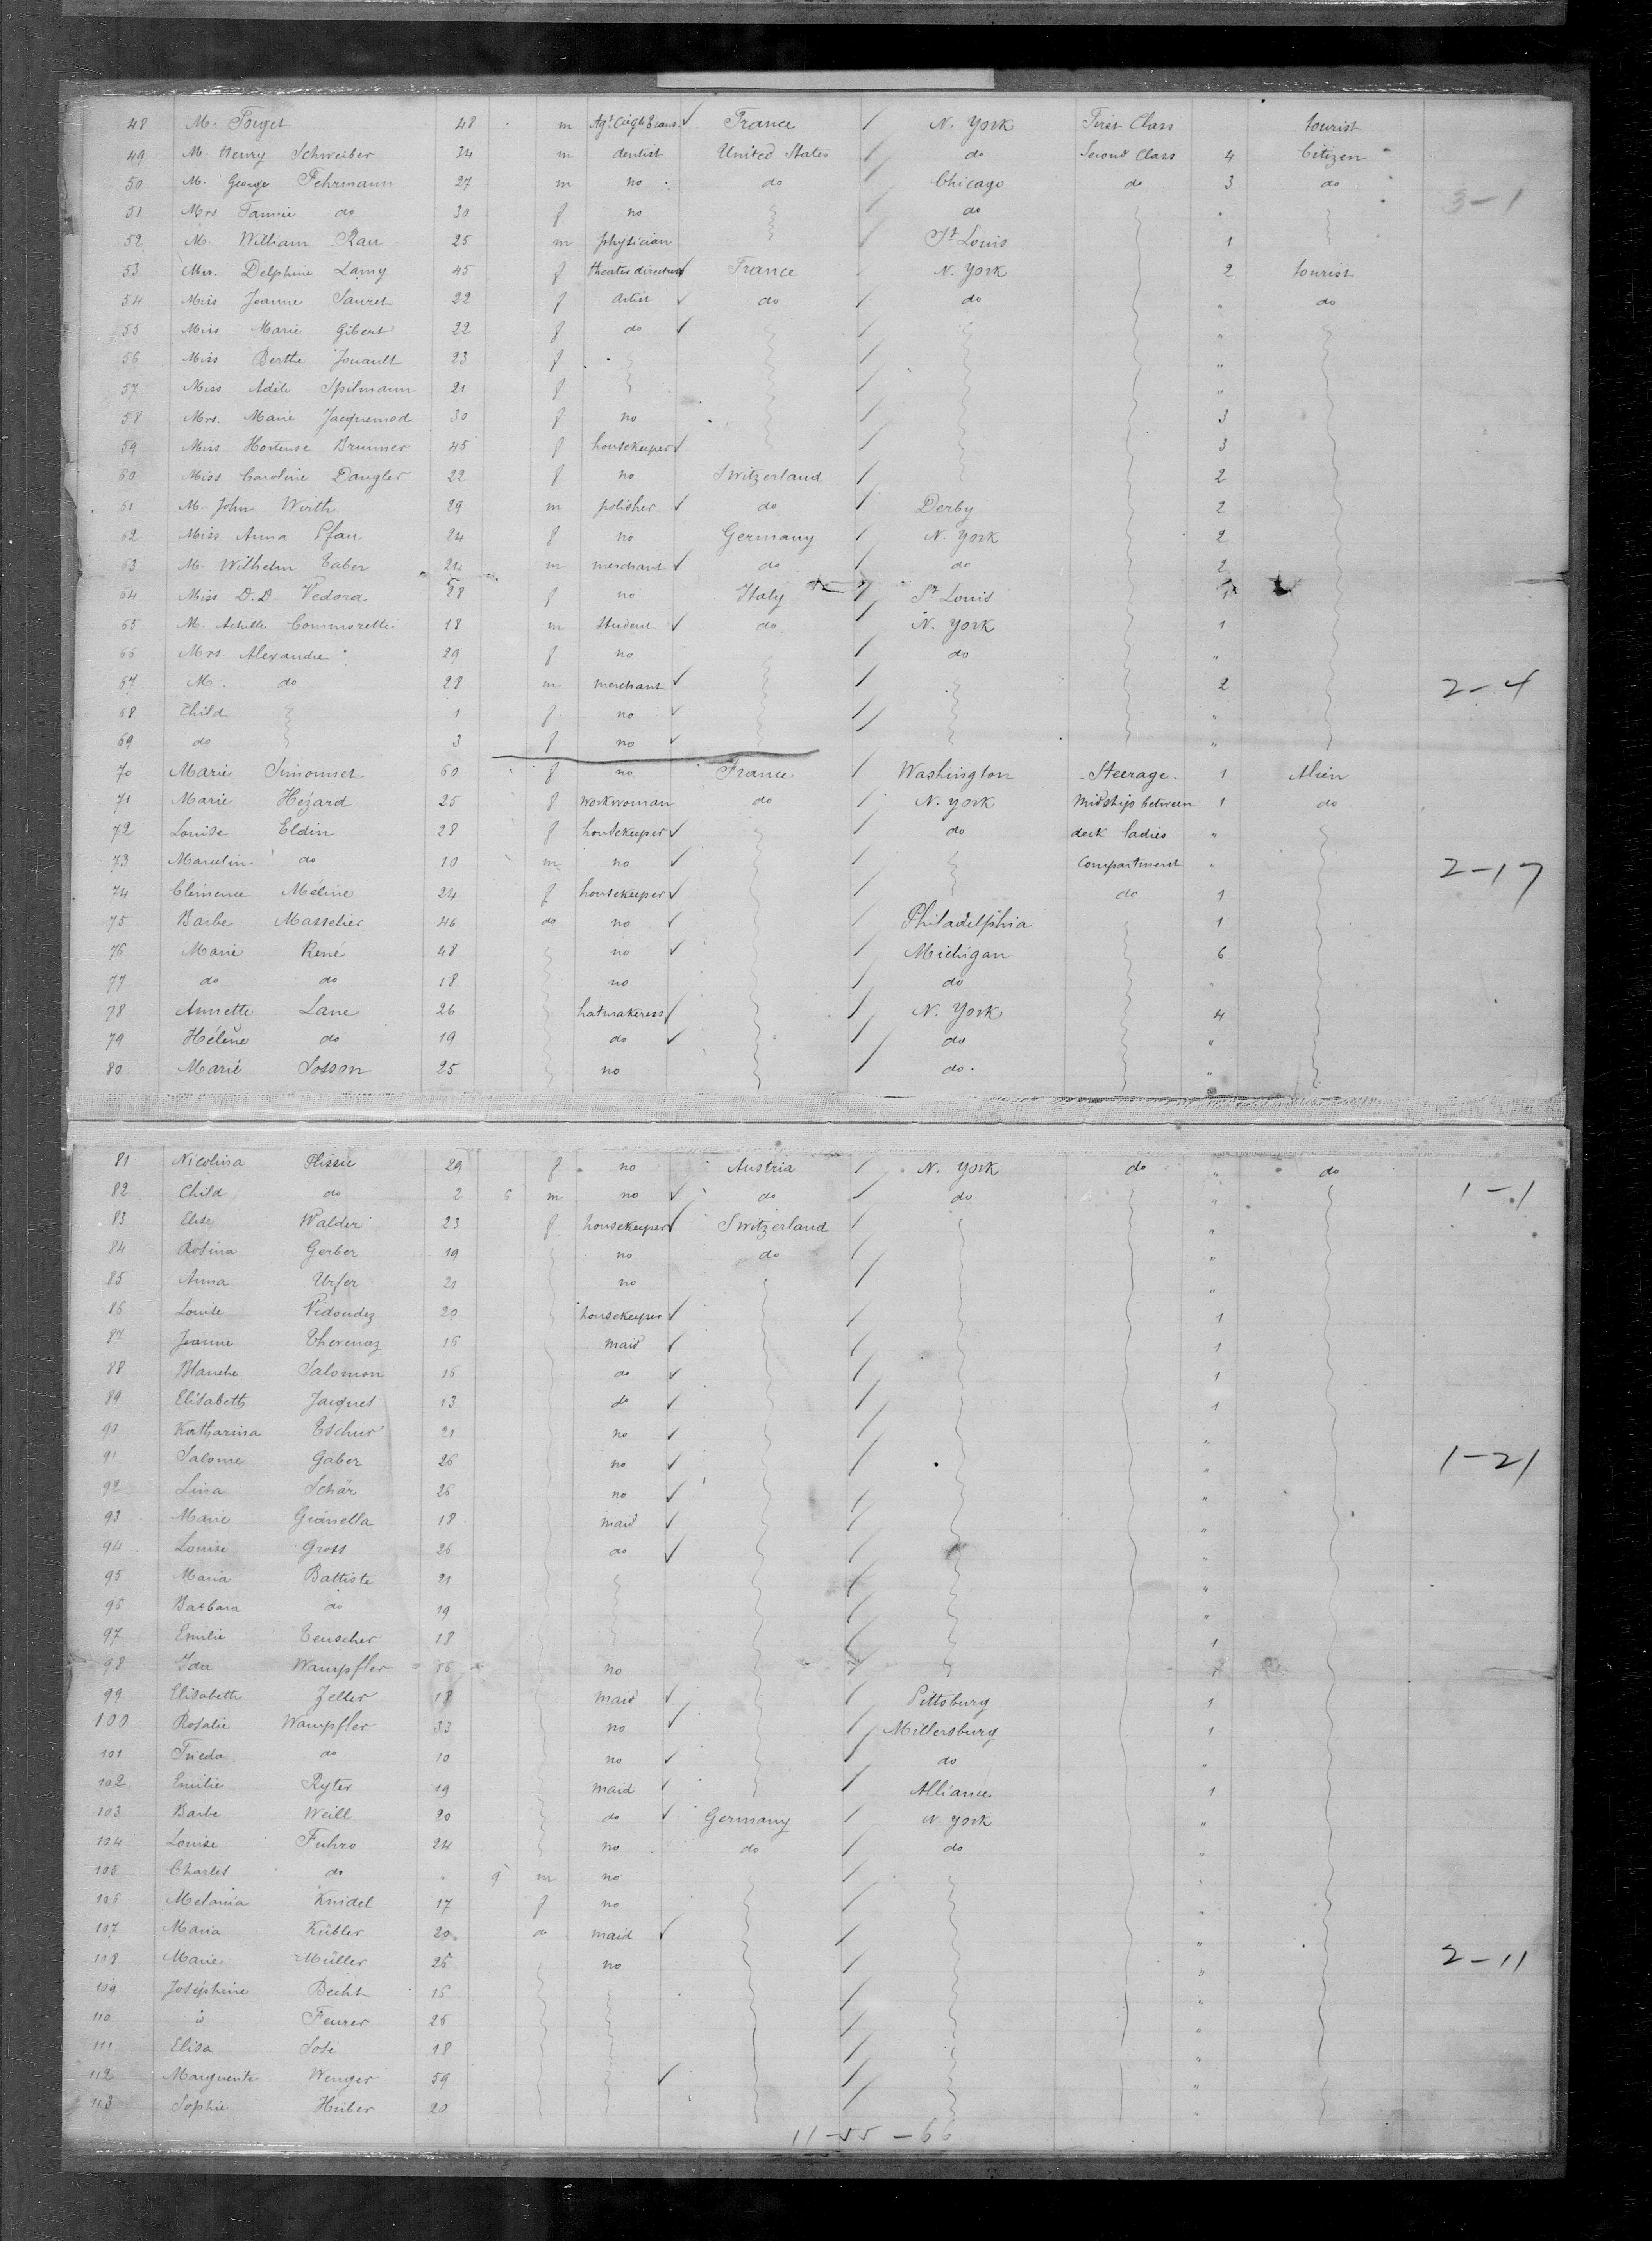 48 M. Forget 48 m Agt. Cie Gle Trans. France N. York First Class tourist
49 M. Henry Schweiber 34 m dentist United States do Second Class 4 Citizen
50 M. George Fehrmann 27 m no do Chicago do 3 do
3-1
51 Mrs Fannie do 30 f no do "
52 M. William Rau 25 m physician St Louis 1
53 Mrs. Delphine Lamy 45 f theater directress France N. York 2 tourist
54 Miss Jeanne Sauret 22 f artist do do " do
55 Miss Marie Gibert 22 f do "
56 Miss Berthe Jouault 23 f "
57 Miss Adèle Spilmann 21 f "
58 Mrs. Marie Jacquemod 30 f no 3
59 Miss Hortense Brunner 45 f housekeeper 3
60 Miss Caroline Dangler 22 f no Switzerland 2
61 M. John Wirth 29 m polisher do Derby 2
62 Miss Anna Pfau 24 f no Germany N. York 2
63 M. Wilhelm Taber 24 m merchant do do 2
64 Miss D.D. Vedora 28 f no Italy St Louis 1
65 M. Achille Commoretti 18 m student do N. York 1
66 Mrs. Alexandre 29 f no do "
67 M. do 28 m merchant 2
2-4
68 Child 1 f no "
69 do 3 f no "
70 Marie Simonnet 60 f no France Washington Steerage 1 Alien
71 Marie Hézard 25 f workwoman do N. York Midship between 1 do
72 Louise Eldin 28 f housekeeper do deck ladies "
73 Marcelin do 10 m no Compartment "
2-17
74 Clémence Méline 24 f housekeeper do 1
75 Barbe Masselier 46 do no Philadelphia 1
76 Marie René 48 no Michigan 6
77 do do 18 no do "
78 Annette Lane 26 hatmakeress N. York 4
79 Hélène do 19 do do "
80 Marie Sosson 25 no do. "
81 Nicolina Plissic 29 f no Austria N. York do " do
82 Child do 2 6 m no do do "
1-1
83 Elise Walder 23 f housekeeper Switzerland "
84 Rosina Gerber 19 no do "
85 Anna Urfer 21 no "
86 Louise Vidoudez 20 housekeeper 1
87 Jeanne Thevenaz 16 maid 1
88 Blanche Salomon 16 do 1
89 Elisabeth Jacques 13 do 1
90 Katharina Tschur 21 no "
91 Salome Gaber 26 no "
1-21
92 Lina Schär 26 no "
93 Marie Gianella 18 maid "
94 Louise Gross 26 do "
95 Maria Battiste 21 "
96 Barbara do 19 "
97 Emilie Teuscher 18 1
98 Ida Wampfler 16 no
99 Elisabeth Zeller 18 maid Pittsburg 1
100 Rosalie Wampfler 33 no Millersburg 1
101 Frieda do 10 no do "
102 Emilie Ryter 19 maid Alliance 1
103 Barbe Weill 20 do Germany N. York "
104 Louise Fuhro 24 no do do "
105 Charles do " 9 m no "
106 Melania Knidel 17 f no "
107 Maria Kübler 20 do maid "
108 Marie Müller 26 no "
2-11
109 Joséphine Becht 16 "
110 Feurer 26 "
111 Elisa Sosi 18 "
112 Marguerite Wenger 59 "
113 Sophie Huber 20 "
11-55-66